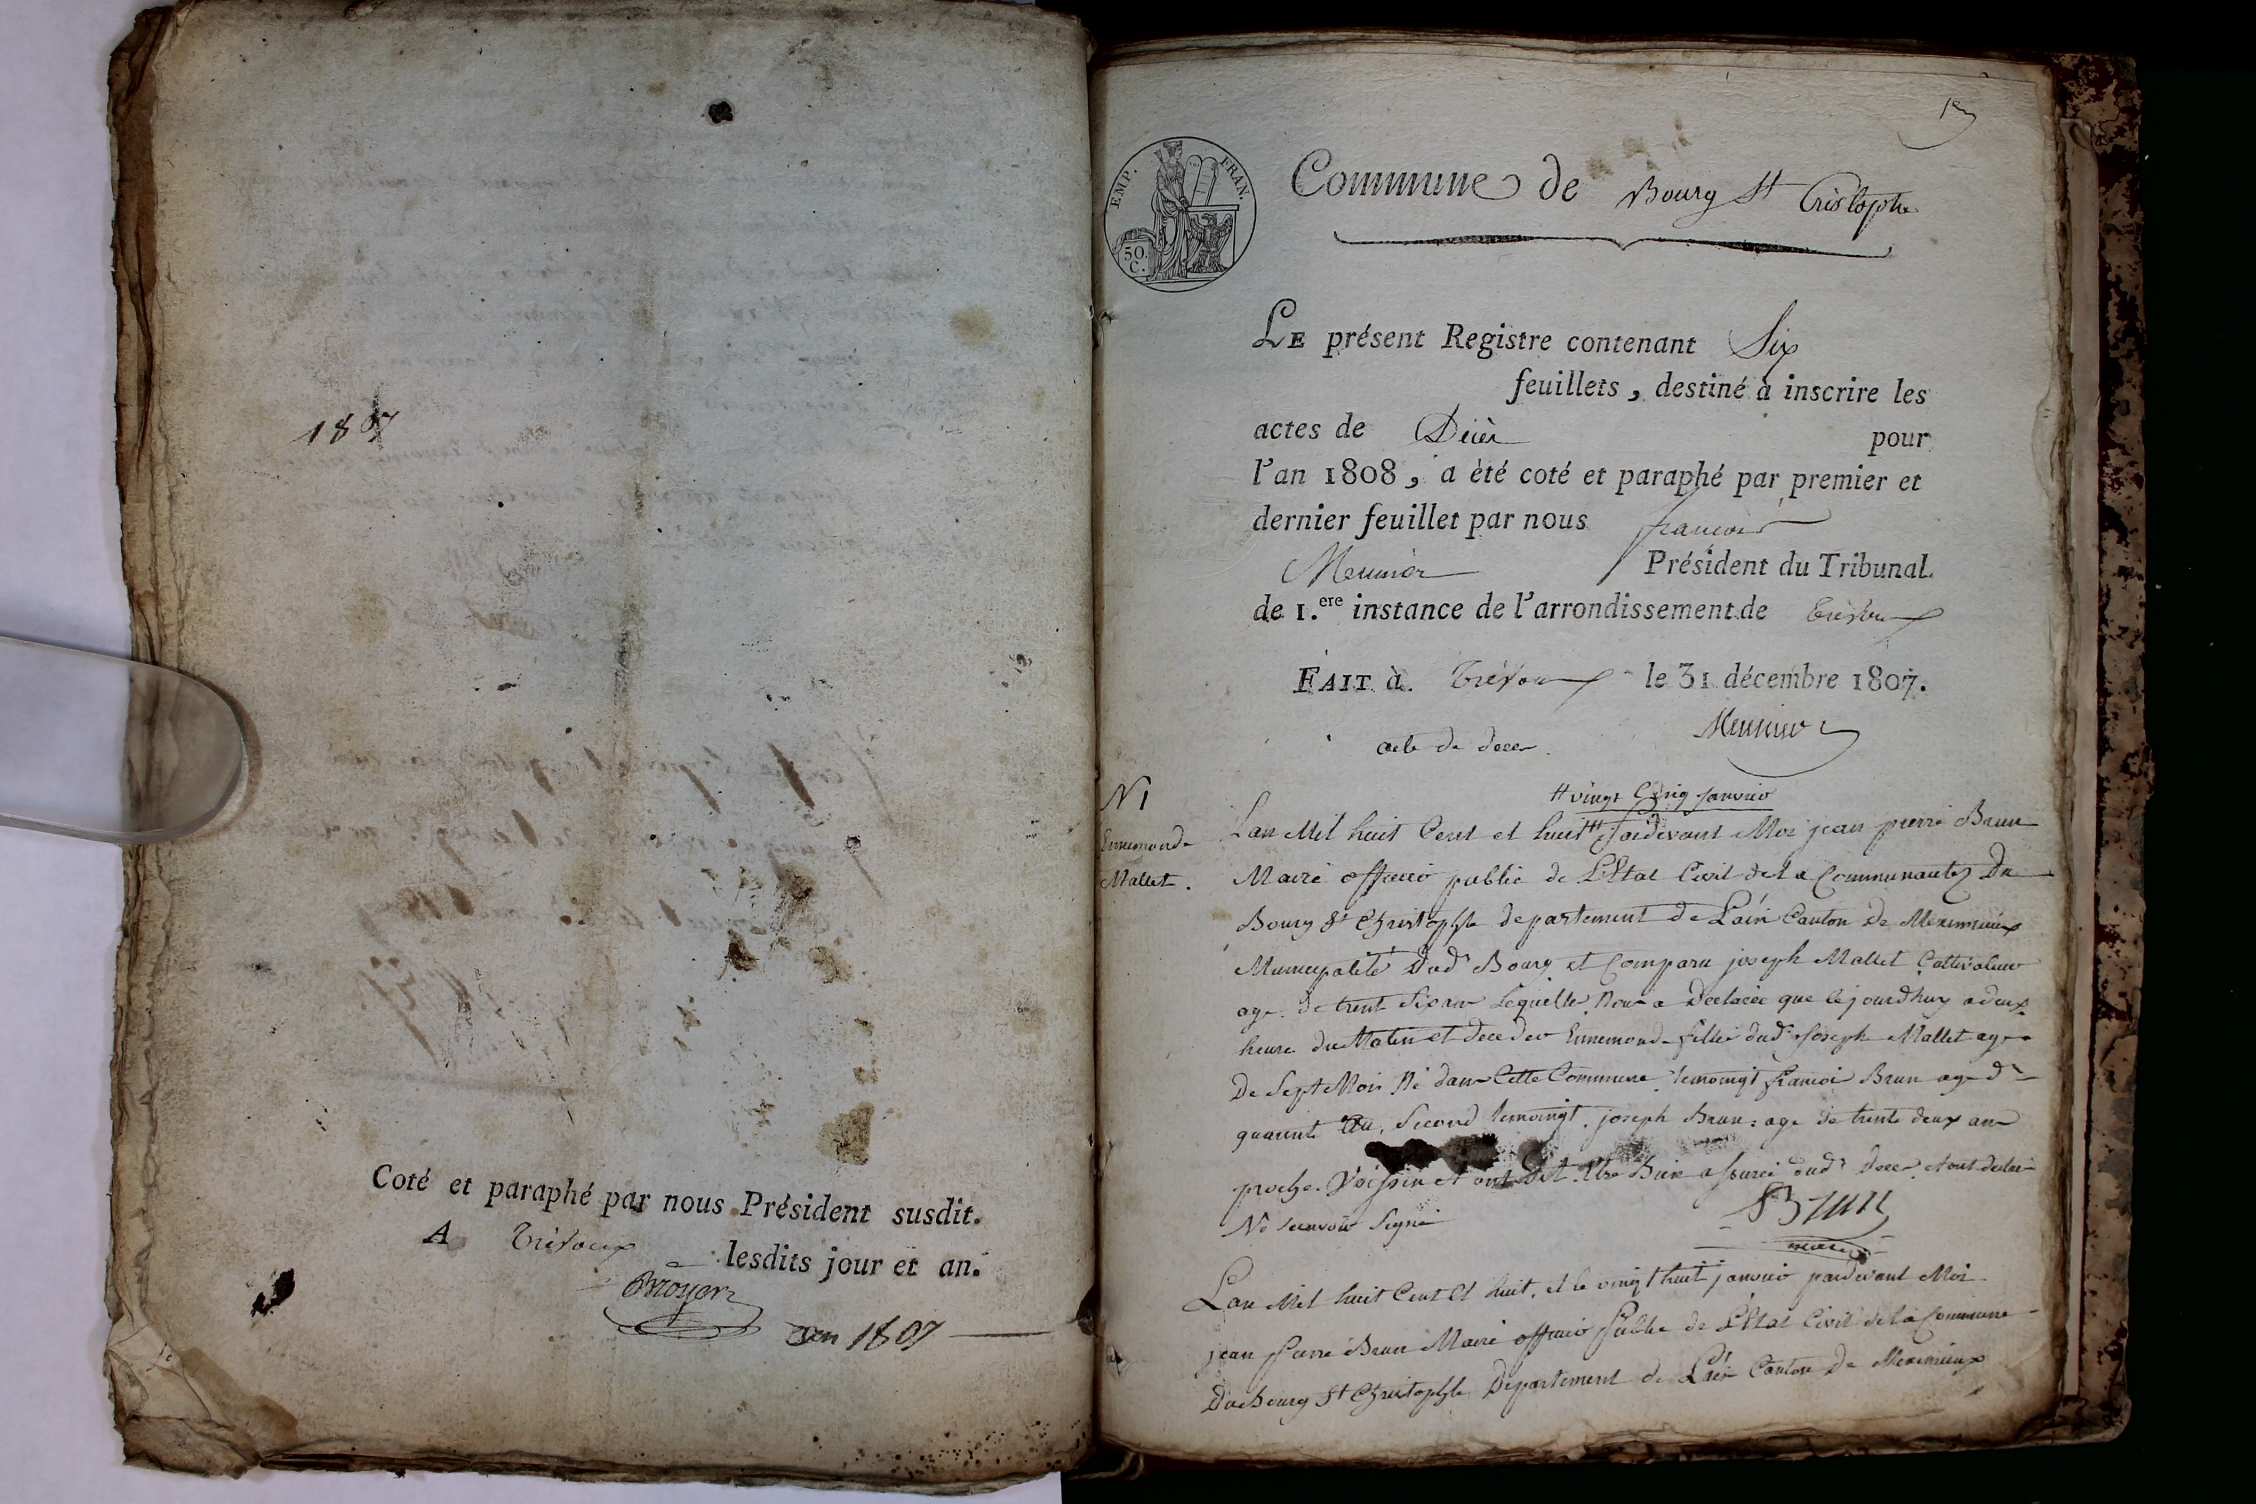 1807
Coté et paraphé par nous Président susdit.
A Trévoux lesdits jour et an.
Broyer
en 1807
1er
EMP. FRAN.
50 C.
Commune de Bourg St Cristophe
LE présent Registre contenant Six
feuillets, destiné à inscrire les
actes de Décès pour
l'an 1808, a été coté et paraphé par premier et
dernier feuillet par nous francois
Meunier Président du Tribunal
de 1.ere instance de l'arrondissement de Trévoux
FAIT à Trévoux le 31 décembre 1807.
Meunier
acte de deces
N 1
Ennemond
Mallet.
# vingt Cinq janvier
Lan Mil huit Cent et huit # pardevant Moi jean pierre Brun
Maire officier public de L'Etat Civil de la Communautez Du
Bourg St Christophe departement de Lain Canton de Meximieux
Municipalité Dud Bourg et Comparu joseph Mallet Cultivateur
age de trent Six an Lequelle Nous a Declarée que lejourdhuy a deux
heure du Matin et decedée Ennemond fille dud Joseph Mallet age
De Sept Mois Né dans Cette Commune temoingt francoi Brun age de
quarente an, Second temoingt joseph Brun age de trente deux an
proche Voissin et ont Dit Etre Bien assurée dud Deces et ont declaré
Ne scavoir Signé
Brun
maire
Lan Mil huit Cent et huit, et le vingt huit janvier pardevant Moi
jean pierre Brun Maire officier Public de L'Etat Civil de la Commune
Du Bourg St Christophe Departement de Lain Canton De Meximieux